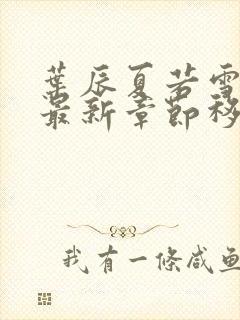 葉辰夏若雪
最新章節移
我有一條咸魚